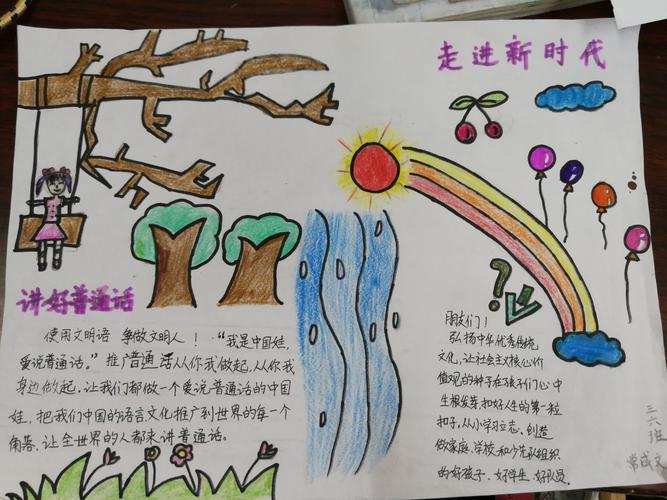 走进新时代
讲好普通话
使用文明语 争做文明人！“我是中国娃,
爱说普通话。”推广普通话从你我做起,从你我
身边做起。让我们都做一个爱说普通话的中国
娃,把我们中国的语言文化推广到世界的每一个
角落、让全世界的人都来讲普通话。
朋友们！
弘扬中华优秀传统
文化,让社会主义核心价
值观的种子在孩子们心中
生根发芽,扣好人生的第一粒
扣子,从小学习立志、创造
做家庭、学校和少先队组织
的好孩子、好学生、好队员。
三六班
常成文